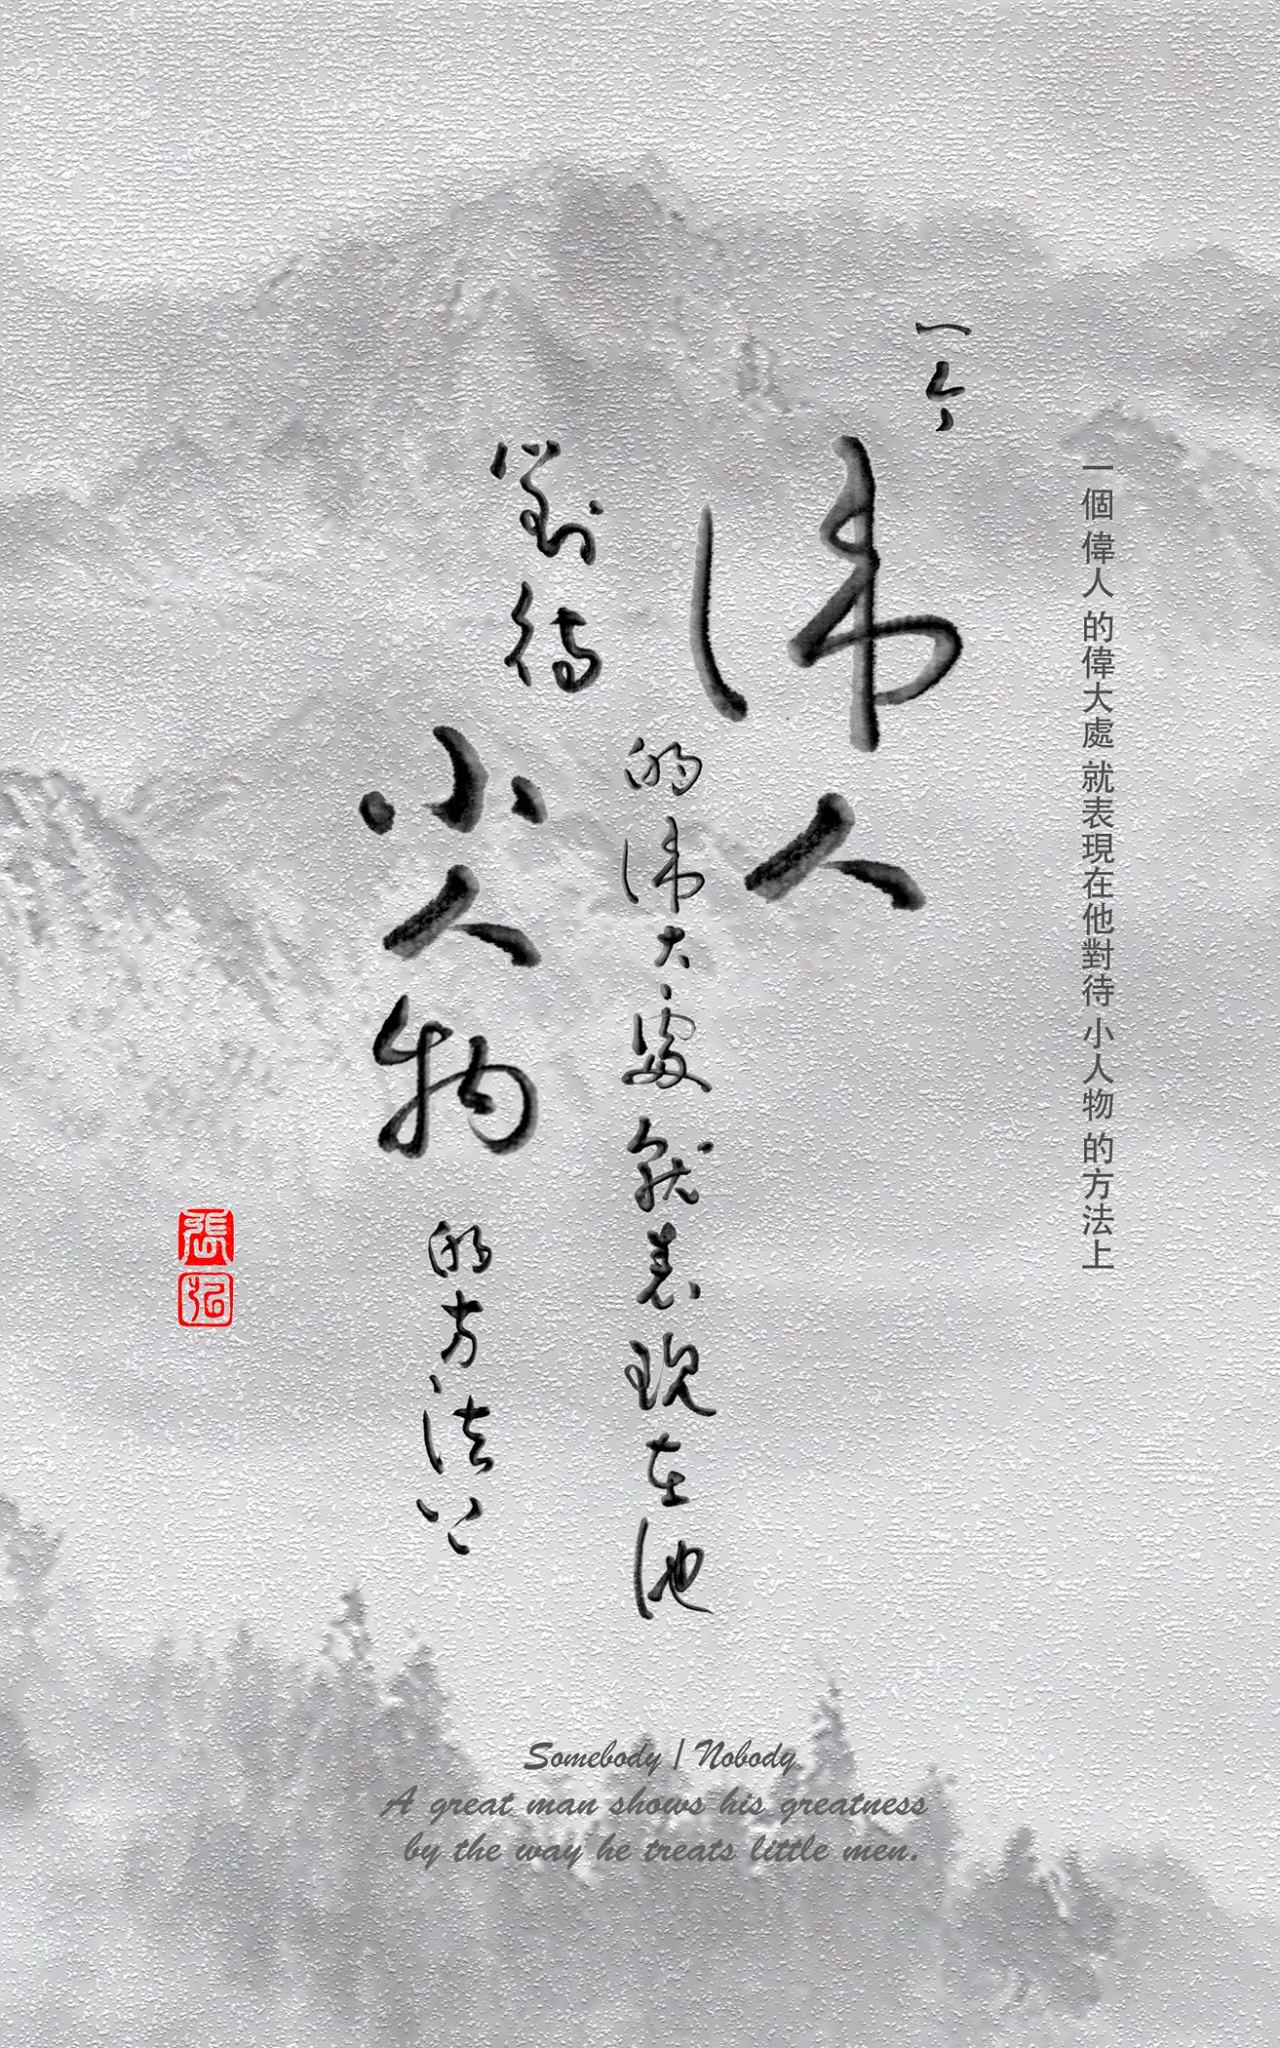 一個偉人的偉大處就表現在他對待小人物的方法上
一个
伟人
的伟大處就表現在他
對待
小人物
的方法上
張
弘
Somebody | Nobody
A great man shows his greatness
by the way he treats little men.